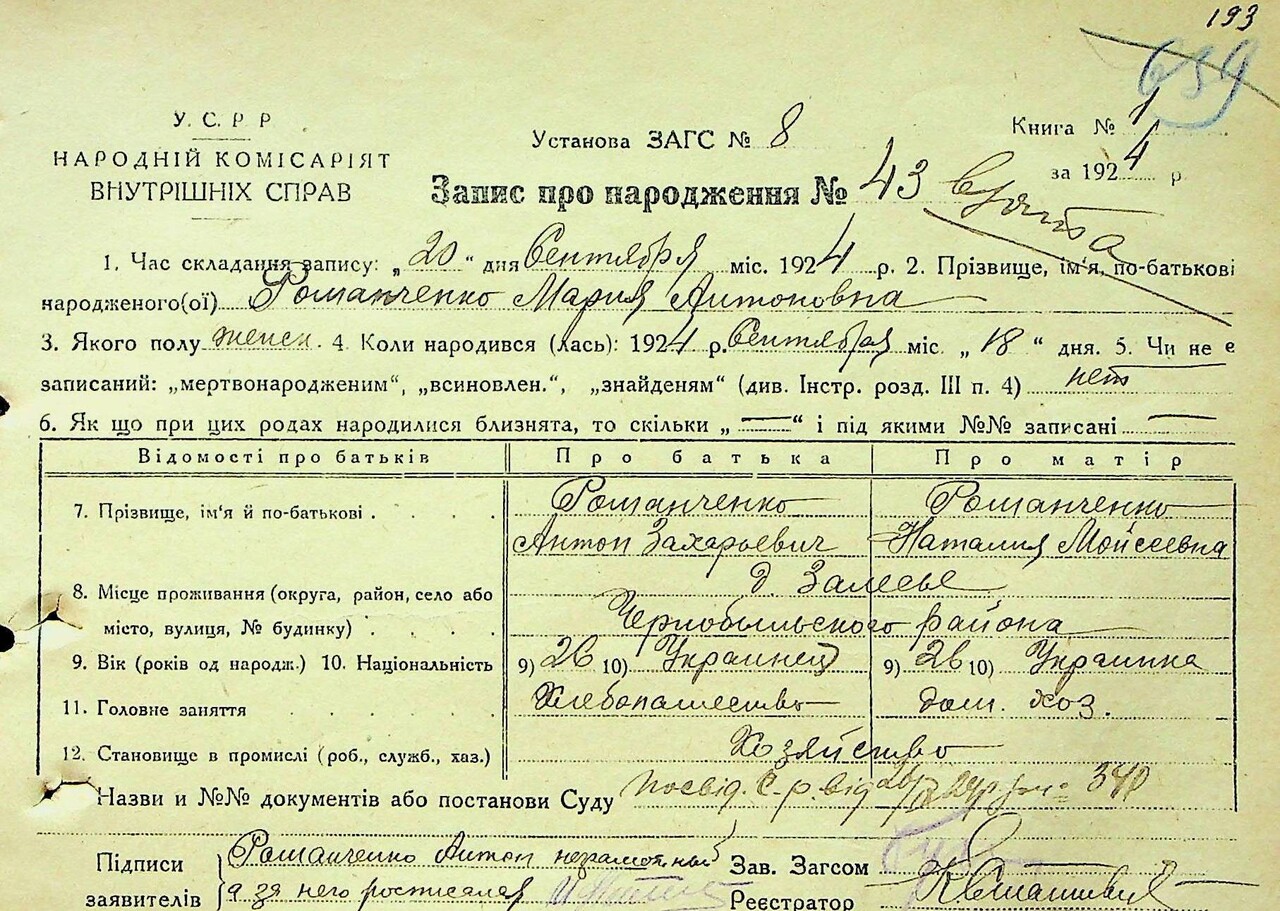 193
689
У. С. Р Р
НАРОДНІЙ КОМІСАРІЯТ
ВНУТРІШНІХ СПРАВ
Установа ЗАГС № 8
Книга № 1
за 1924 р.
Запис про народження № 43
1. Час складання запису: „20“ дня Сентября міс. 1924 р. 2. Прізвище, ім'я, по-батькові
народженого(ої) Романченко Мария Антоновна
3. Якого полу женск. 4. Коли народився (лась): 1924 р. Сентября міс. „18“ дня. 5. Чи не є
записаний: „мертвонародженим“, „всиновлен.“, „знайденям“ (див. Інстр. розд. III п. 4) нет
6. Як що при цих родах народилися близнята, то скільки „—“ і під якими №№ записані —
Відомості про батьків Про батька Про матір
7. Прізвище, ім'я й по-батькові . . . . Романченко Романченко
Антон Захарьевич Наталия Мойсеевна
8. Місце проживання (округа, район, село або д. Залесье
місто, вулиця, № будинку) . . . . Чернобыльского района
9. Вік (років од народж.) 10. Національність 9) 26 10) Украинец 9) 26 10) Украинка
11. Головне заняття . . . . Хлебопашество дом. хоз.
12. Становище в промислі (роб., служб., хаз.) Хозяйство
Назви и №№ документів або постанови Суду Посвід. С. р. від 340
Підписи Романченко Антон неграмотный Зав. Загсом
заявителів а за него росписался Реєстратор